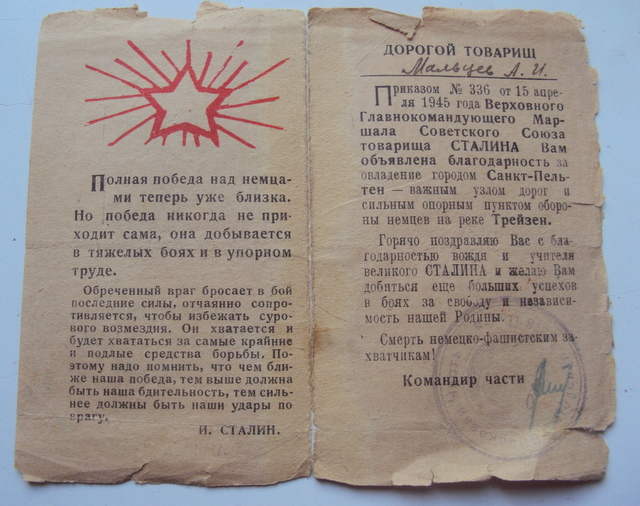 Полная победа над немца-
ми теперь уже близка.
Но победа никогда не при-
ходит сама, она добывается
в тяжелых боях и в упорном
труде.
Обреченный враг бросает в бой
последние силы, отчаянно сопро-
тивляется, чтобы избежать суро-
вого возмездия. Он хватается и
будет хвататься за самые крайние
и подлые средства борьбы. По-
этому надо помнить, что чем бли-
же наша победа, тем выше должна
быть наша бдительность, тем силь-
нее должны быть наши удары по
врагу.
И. СТАЛИН.
ДОРОГОЙ ТОВАРИЩ
Мальцев А. И.
Приказом № 336 от 15 апре-
ля 1945 года Верховного
Главнокомандующего Мар-
шала Советского Союза
товарища СТАЛИНА Вам
объявлена благодарность за
овладение городом Санкт-Пель-
тен — важным узлом дорог и
сильным опорным пунктом оборо-
ны немцев на реке Трейзен.
Горячо поздравляю Вас с бла-
годарностью вождя и учителя
великого СТАЛИНА и желаю Вам
добиться еще больших успехов
в боях за свободу и независи-
мость нашей Родины.
Смерть немецко-фашистским за-
хватчикам!
Командир части